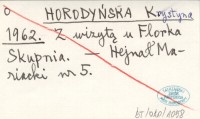 o HORODYŃSKA Krystyna
1962. Z wizytą u Florka
Skupnia. — Hejnał Ma-
riacki nr 5.